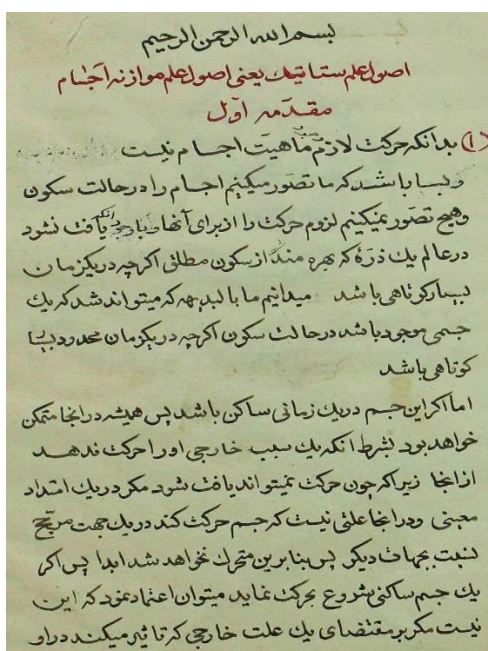 بسم الله الرحمن الرحیم
اصول علم ستاتیک یعنی اصول علم موازنه اجسام
مقدمه اول
(۱) بدانکه حرکت لازم ماهیت اجسام نیست
و بسا باشد که ما تصور میکنیم اجسام را در حالت سکون
و هیچ تصور نمیکنیم لزوم حرکت را از برای آنها یافت نشود
در عالم یک ذرهٔ که بهره مند از سکون مطلقی اگرچه در یکزمان
بسیار کوتاهی باشد میدانیم ما بالبدیهه که میتواند شد که یک
جسمی موجود باشد در حالت سکون اگرچه در یکزمان محدود بسیا
کوتاهی باشد
اما اگر این جسم در یک زمانی ساکن باشد پس همیشه در انجا متمکن
خواهد بود بشرط انکه یک سبب خارجی او را حرکت ندهد
از انجا زیرا که چون حرکت نمیتواند یافت شود مگر در یک امتداد
معینی و در انجا علتی نیست که جسم حرکت کند در یک جهت مرجح
نسبت بجهات دیگر پس بنابرین متحرک نخواهد شد ابدا پس اگر
یک جسم ساکنی شروع بحرکت نماید میتوان اعتماد نمود که این
نیست مگر بر مقتضای یک علت خارجی که تاثیر میکند در او